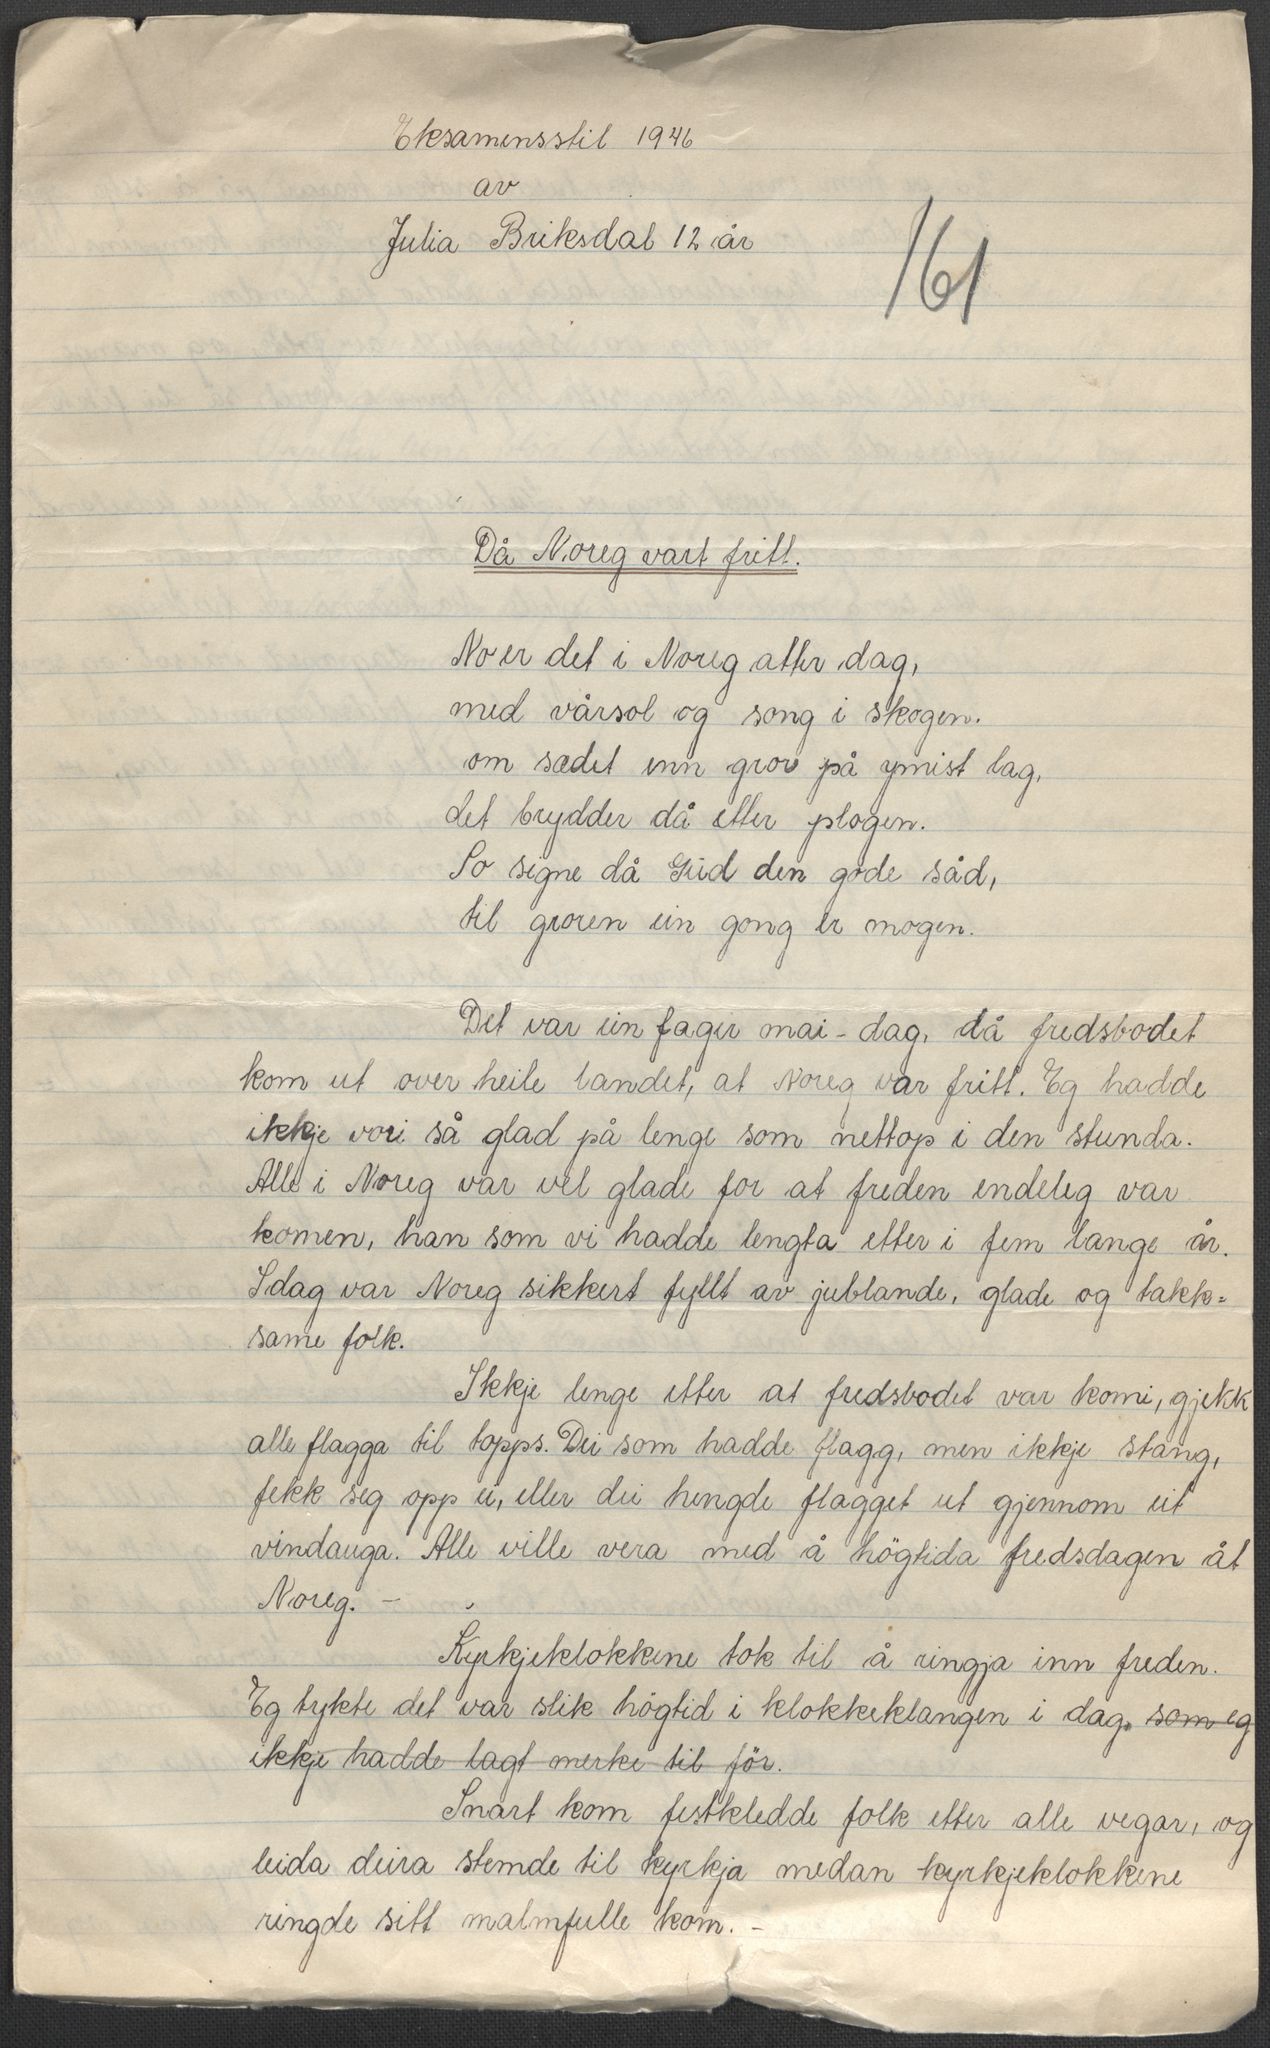 Eksamensstil 1946
av
Julia Briksdal 12 år
161
Då Noreg vart fritt.
No er det i Noreg atter dag,
med vårsol og song i skogen.
om sædet enn gror på ymist lag,
det brydder då etter plogen.
So signe då Gud den gode såd,
til groren ein gong er mogen.
Det var ein fager mai-dag, då fredsbodet
kom ut over heile landet, at Noreg var fritt. Eg hadde
ikkje vori så glad på lenge som nettop i den stunda.
Alle i Noreg var vel glade for at freden endeleg var
komen, han som vi hadde lengta etter i fem lange år.
Idag var Noreg sikkert fyllt av jublande, glade og takk=
same folk.
Ikkje lenge etter at fredsbodet var komi, gjekk
alle flagga til topps. Dei som hadde flagg, men ikkje stang,
fekk seg opp ei, eller dei hengde flagget ut gjennom eit
vindauga. Alle ville vera med å högtida fredsdagen åt
Noreg. -
Kyrkjeklokkene tok til å ringja inn freden.
Eg tykte det var slik högtid i klokkeklangen i dag. som eg
ikkje hadde lagt merke til för.
Snart kom festkledde folk etter alle vegar, og
leida deira stemde til kyrkja medan kyrkjeklokkene
ringde sitt malmfulle kom. -